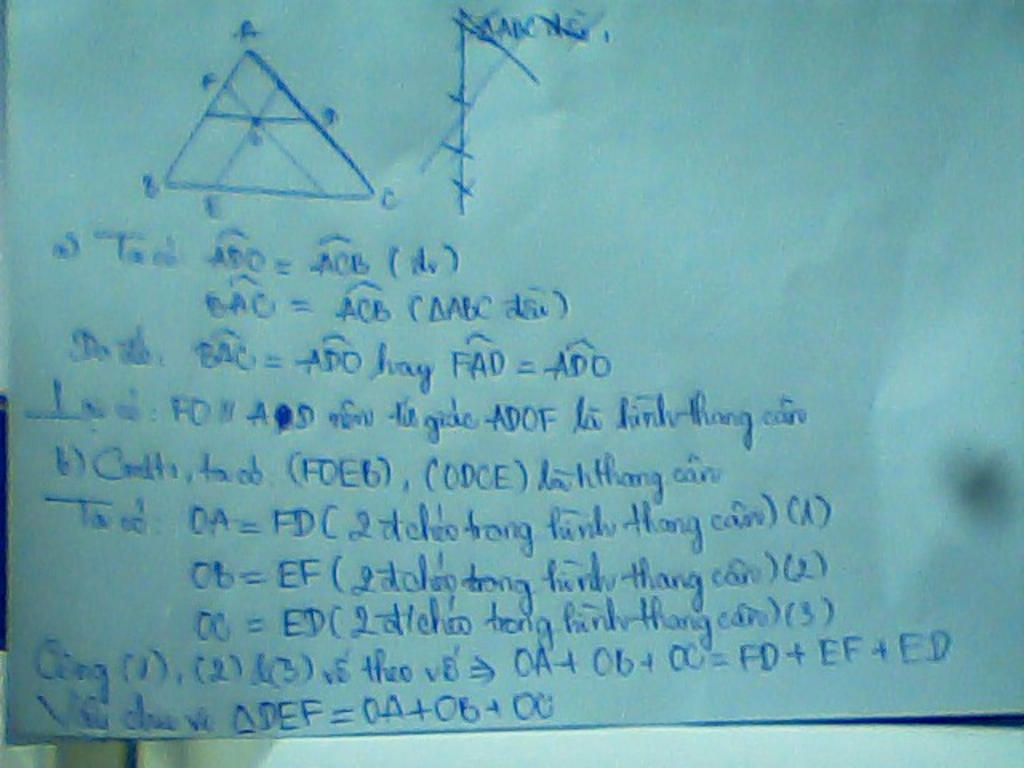 A
F
D
O
B
E
C
ΔABC đều.
a) Ta có: ∠ADO = ∠ACB (đv)
∠BAC = ∠ACB (ΔABC đều)
Do đó: ∠BAC = ∠ADO hay ∠FAD = ∠ADO
Lại có: FO // AD nên tứ giác ADOF là hình thang cân
b) Cmtt, ta có (FOEB), (ODCE) là hthang cân
Ta có: OA = FD (2 đ/chéo trong hình thang cân) (1)
OB = EF (2 đ/chéo trong hình thang cân) (2)
OC = ED (2 đ/chéo trong hình thang cân) (3)
Cộng (1), (2) & (3) vế theo vế ⇒ OA + OB + OC = FD + EF + ED
Vậy chu vi ΔDEF = OA + OB + OC